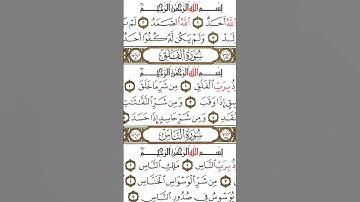 بِسْمِ اللهِ الرَّحْمٰنِ الرَّحِيْمِ
اللهُ أَحَدٌ ۝ اللهُ الصَّمَدُ ۝ لَمْ
لَدْ ۝ وَلَمْ يَكُن لَّهُ كُفُوًا أَحَدٌ
سُوْرَةُ الْفَلَقِ
بِسْمِ اللهِ الرَّحْمٰنِ الرَّحِيْمِ
ذُ بِرَبِّ الْفَلَقِ ۝ مِن شَرِّ مَا خَلَقَ
قٍ إِذَا وَقَبَ ۝ وَمِن شَرِّ النَّفَّٰثَٰتِ
عُقَدِ ۝ وَمِن شَرِّ حَاسِدٍ إِذَا حَسَدَ
سُوْرَةُ النَّاسِ
بِسْمِ اللهِ الرَّحْمٰنِ الرَّحِيْمِ
ذُ بِرَبِّ النَّاسِ ۝ مَلِكِ النَّاسِ
مِن شَرِّ الْوَسْوَاسِ الْخَنَّاسِ
يُوَسْوِسُ فِي صُدُورِ النَّاسِ